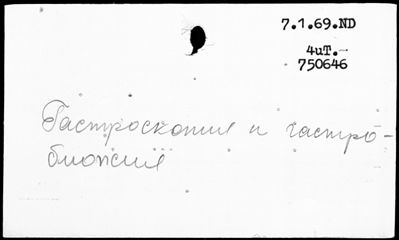 7.1.69.ND
4иТ.-
750646
Гастроскопия и гастро-
биопсия